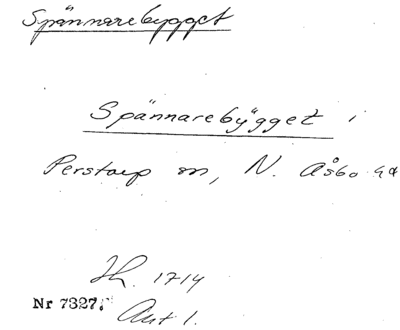 Spännarebygget
Spännarebygget i
Perstorp sn, N. Åsbo hd
Jh. 1714
Nr 7327.
Ant 1.